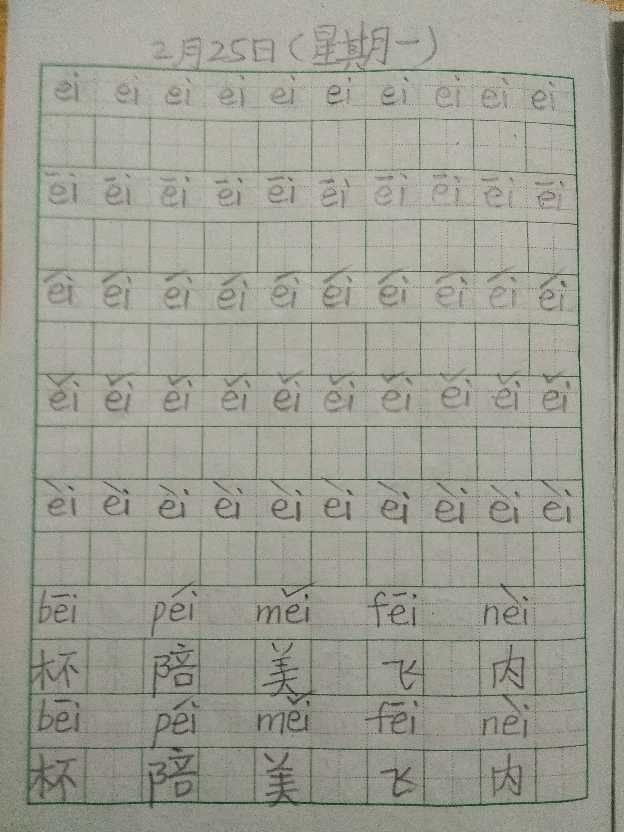 2月25日(星期一)
ei ei ei ei ei ei ei ei ei ei
ēi ēi ēi ēi ēi ēi ēi ēi ēi ēi
éi éi éi éi éi éi éi éi éi éi
ěi ěi ěi ěi ěi ěi ěi ěi ěi ěi
èi èi èi èi èi èi èi èi èi èi
bēi péi měi fēi nèi
杯 陪 美 飞 内
bēi péi měi fēi nèi
杯 陪 美 飞 内